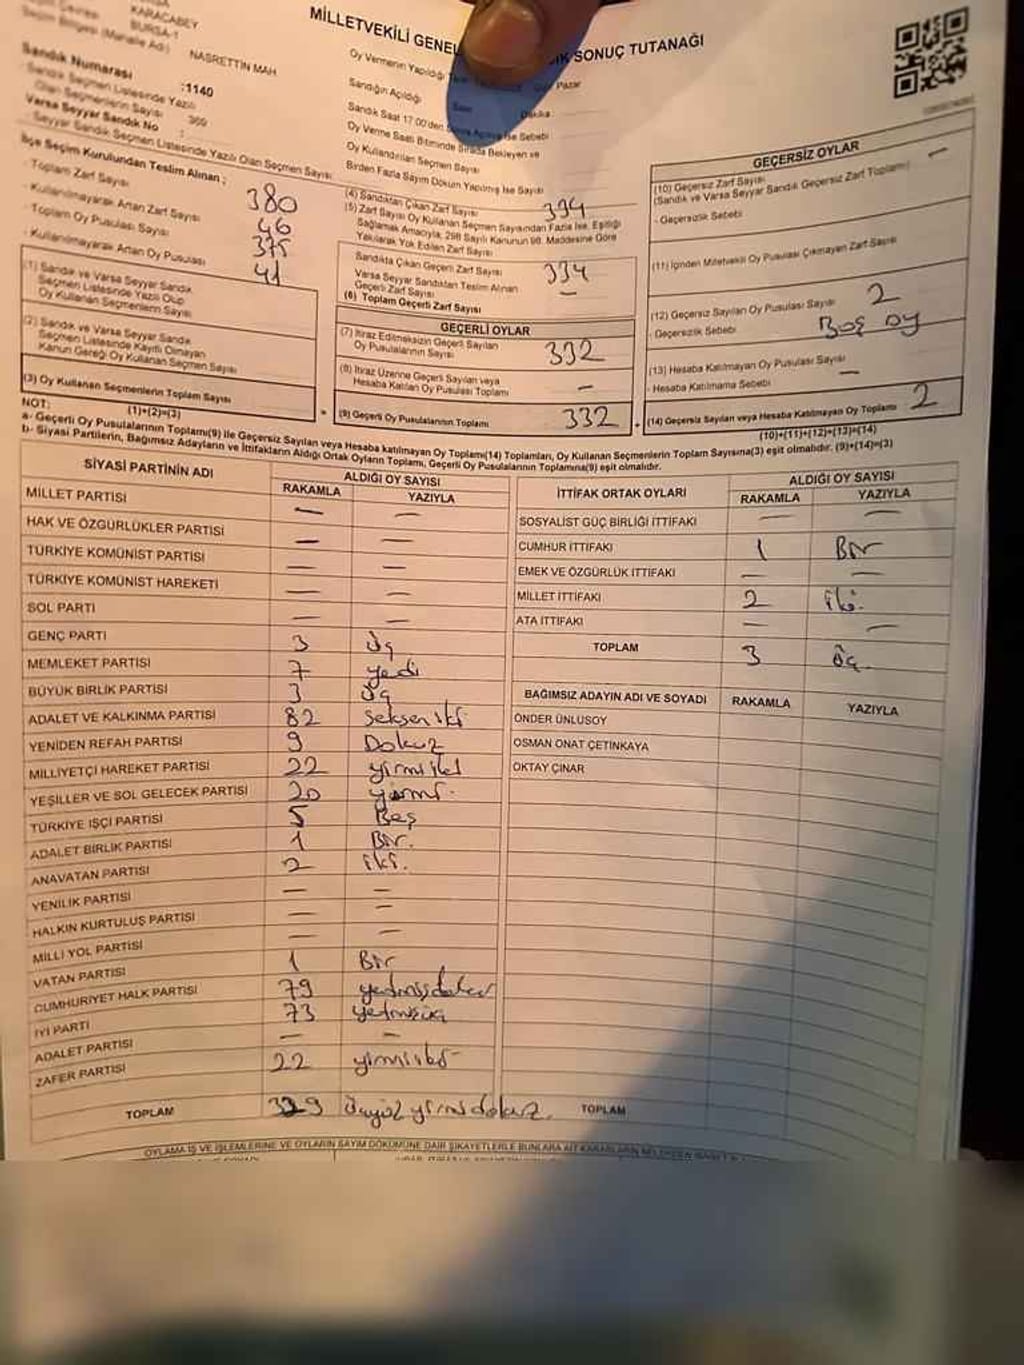 KARACABEY
BURSA-1
NASRETTİN MAH
MİLLETVEKİLİ GENEL SONUÇ TUTANAĞI
Sandık Numarası :1140
Sandık Seçmen Listesinde Yazılı Olan Seçmenlerin Sayısı 360
Varsa Seyyar Sandık No :
Seyyar Sandık Seçmen Listesinde Yazılı Olan Seçmen Sayısı
İlçe Seçim Kurulundan Teslim Alınan ;
- Toplam Zarf Sayısı 380
- Kullanılmayarak Artan Zarf Sayısı 46
- Toplam Oy Pusulası Sayısı 375
- Kullanılmayarak Artan Oy Pusulası 41
(1) Sandık ve Varsa Seyyar Sandık Seçmen Listesinde Yazılı Olup Oy Kullanan Seçmenlerin Sayısı
(2) Sandık ve Varsa Seyyar Sandık Seçmen Listesinde Kayıtlı Olmayan Kanun Gereği Oy Kullanan Seçmen Sayısı
(3) Oy Kullanan Seçmenlerin Toplam Sayısı
(1)+(2)=(3)
Oy Vermenin Yapıldığı Pazar
Sandığın Açıldığı Dakika
Oy Kullandıran Seçmen Sayısı
Birden Fazla Sayım Döküm Yapılmış İse Sayısı
(4) Sandıktan Çıkan Zarf Sayısı 334
(5) Zarf Sayısı Oy Kullanan Seçmen Sayısından Fazla İse, Eşitliği Sağlamak Amacıyla, 298 Sayılı Kanunun 98. Maddesine Göre Yakılarak Yok Edilen Zarf Sayısı
Sandıkta Çıkan Geçerli Zarf Sayısı 334
Varsa Seyyar Sandıktan Teslim Alınan Geçerli Zarf Sayısı —
(6) Toplam Geçerli Zarf Sayısı
GEÇERLİ OYLAR
(7) İtiraz Edilmeksizin Geçerli Sayılan Oy Pusulalarının Sayısı 332
(8) İtiraz Üzerine Geçerli Sayılan veya Hesaba Katılan Oy Pusulası Toplamı —
(9) Geçerli Oy Pusulalarının Toplamı 332
GEÇERSİZ OYLAR
(10) Geçersiz Zarf Sayısı —
(Sandık ve Varsa Seyyar Sandık Geçersiz Zarf Toplamı)
- Geçersizlik Sebebi
(11) İçinden Milletvekili Oy Pusulası Çıkmayan Zarf Sayısı
(12) Geçersiz Sayılan Oy Pusulası Sayısı 2
- Geçersizlik Sebebi Boş oy
(13) Hesaba Katılmayan Oy Pusulası Sayısı —
- Hesaba Katılmama Sebebi
(14) Geçersiz Sayılan veya Hesaba Katılmayan Oy Toplamı 2
(10)+(11)+(12)+(13)=(14)
NOT:
a- Geçerli Oy Pusulalarının Toplamı(9) ile Geçersiz Sayılan veya Hesaba katılmayan Oy Toplamı(14) Toplamları, Oy Kullanan Seçmenlerin Toplam Sayısına(3) eşit olmalıdır. (9)+(14)=(3)
b- Siyasi Partilerin, Bağımsız Adayların ve İttifakların Aldığı Ortak Oyların Toplamı, Geçerli Oy Pusulalarının Toplamına(9) eşit olmalıdır.
SİYASİ PARTİNİN ADI ALDIĞI OY SAYISI
RAKAMLA YAZIYLA
MİLLET PARTİSI — —
HAK VE ÖZGÜRLÜKLER PARTİSİ — —
TÜRKİYE KOMÜNİST PARTİSİ — —
TÜRKİYE KOMÜNİST HAREKETİ — —
SOL PARTİ — —
GENÇ PARTİ 3 Üç
MEMLEKET PARTİSİ 7 yedi
BÜYÜK BİRLİK PARTİSİ 3 Üç
ADALET VE KALKINMA PARTİSİ 82 Seksen iki
YENİDEN REFAH PARTİSİ 9 Dokuz
MİLLİYETÇİ HAREKET PARTİSİ 22 yirmi iki
YEŞİLLER VE SOL GELECEK PARTİSİ 20 yirmi.
TÜRKİYE İŞÇİ PARTİSİ 5 Beş
ADALET BİRLİK PARTİSİ 1 Bir.
ANAVATAN PARTİSİ 2 iki.
YENİLİK PARTİSİ — —
HALKIN KURTULUŞ PARTİSİ — —
MİLLİ YOL PARTİSİ — —
VATAN PARTİSİ 1 Bir
CUMHURİYET HALK PARTİSİ 79 yetmişdokuz
İYİ PARTİ 73 yetmişüç
ADALET PARTİSİ — —
ZAFER PARTİSİ 22 yirmi iki
TOPLAM 329 üçyüz yirmi dokuz.
İTTİFAK ORTAK OYLARI ALDIĞI OY SAYISI
RAKAMLA YAZIYLA
SOSYALİST GÜÇ BİRLİĞİ İTTİFAKI — —
CUMHUR İTTİFAKI 1 Bir
EMEK VE ÖZGÜRLÜK İTTİFAKI — —
MİLLET İTTİFAKI 2 iki.
ATA İTTİFAKI — —
TOPLAM 3 üç.
BAĞIMSIZ ADAYIN ADI VE SOYADI RAKAMLA YAZIYLA
ÖNDER ÜNLÜSOY
OSMAN ONAT ÇETİNKAYA
OKTAY ÇINAR
TOPLAM
OYLAMA İŞ VE İŞLEMLERİNE VE OYLARIN SAYIM DÖKÜMÜNE DAİR ŞİKAYETLERLE BUNLARA AİT KARARLARIN